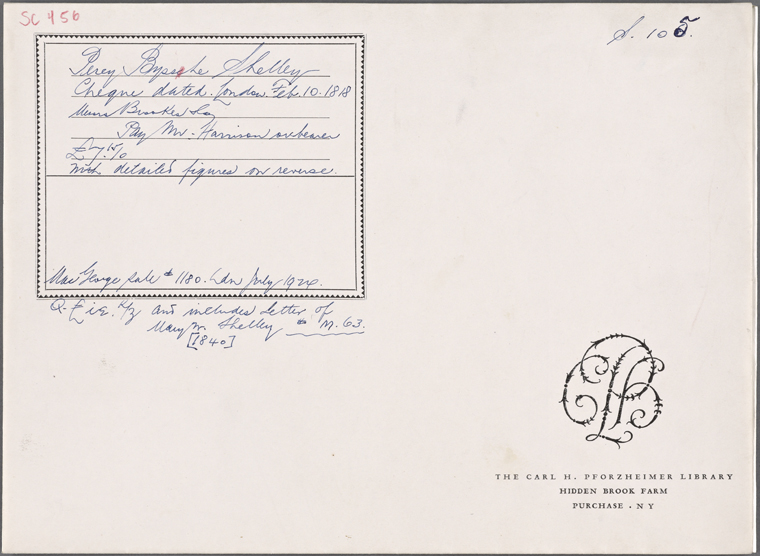 SC 456
S. 105.
Percy Bysshe Shelley
Cheque dated. London. Feb. 10. 1818
Brookes
Pay Mr. Harrison or bearer
£7.
with detailed figures on reverse.
MacGeorge sale # 1180. Ldn July 1924.
and includes letter of
Mary W. Shelley # M. 63.
[1840]
THE CARL H. PFORZHEIMER LIBRARY
HIDDEN BROOK FARM
PURCHASE · NY